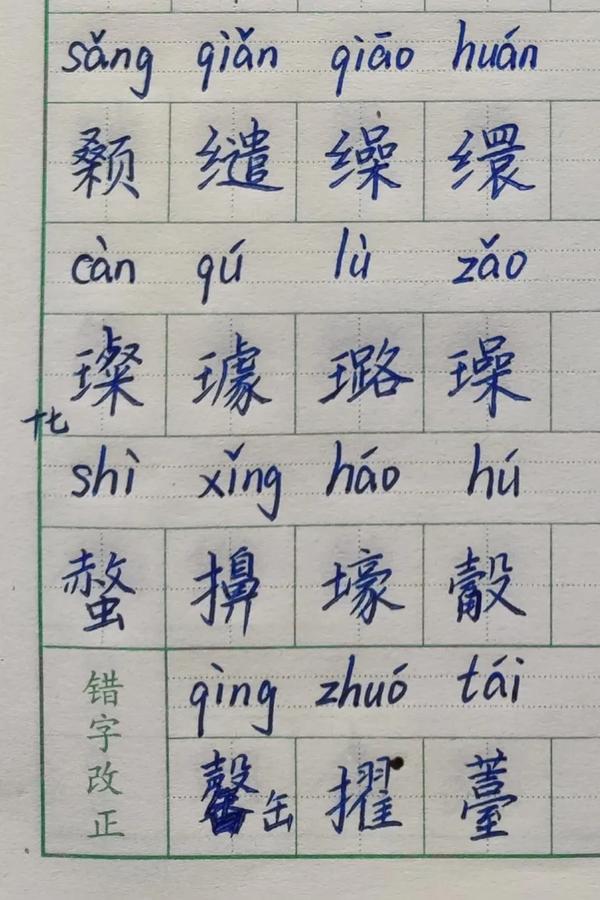 sǎng qiǎn qiāo huán
颡 缱 缲 缳
càn qú lù zǎo
璨 璩 璐 璪
十七
shì xǐng háo hú
螫 擤 壕 觳
错字改正
qìng zhuó tái
缶 擢 薹